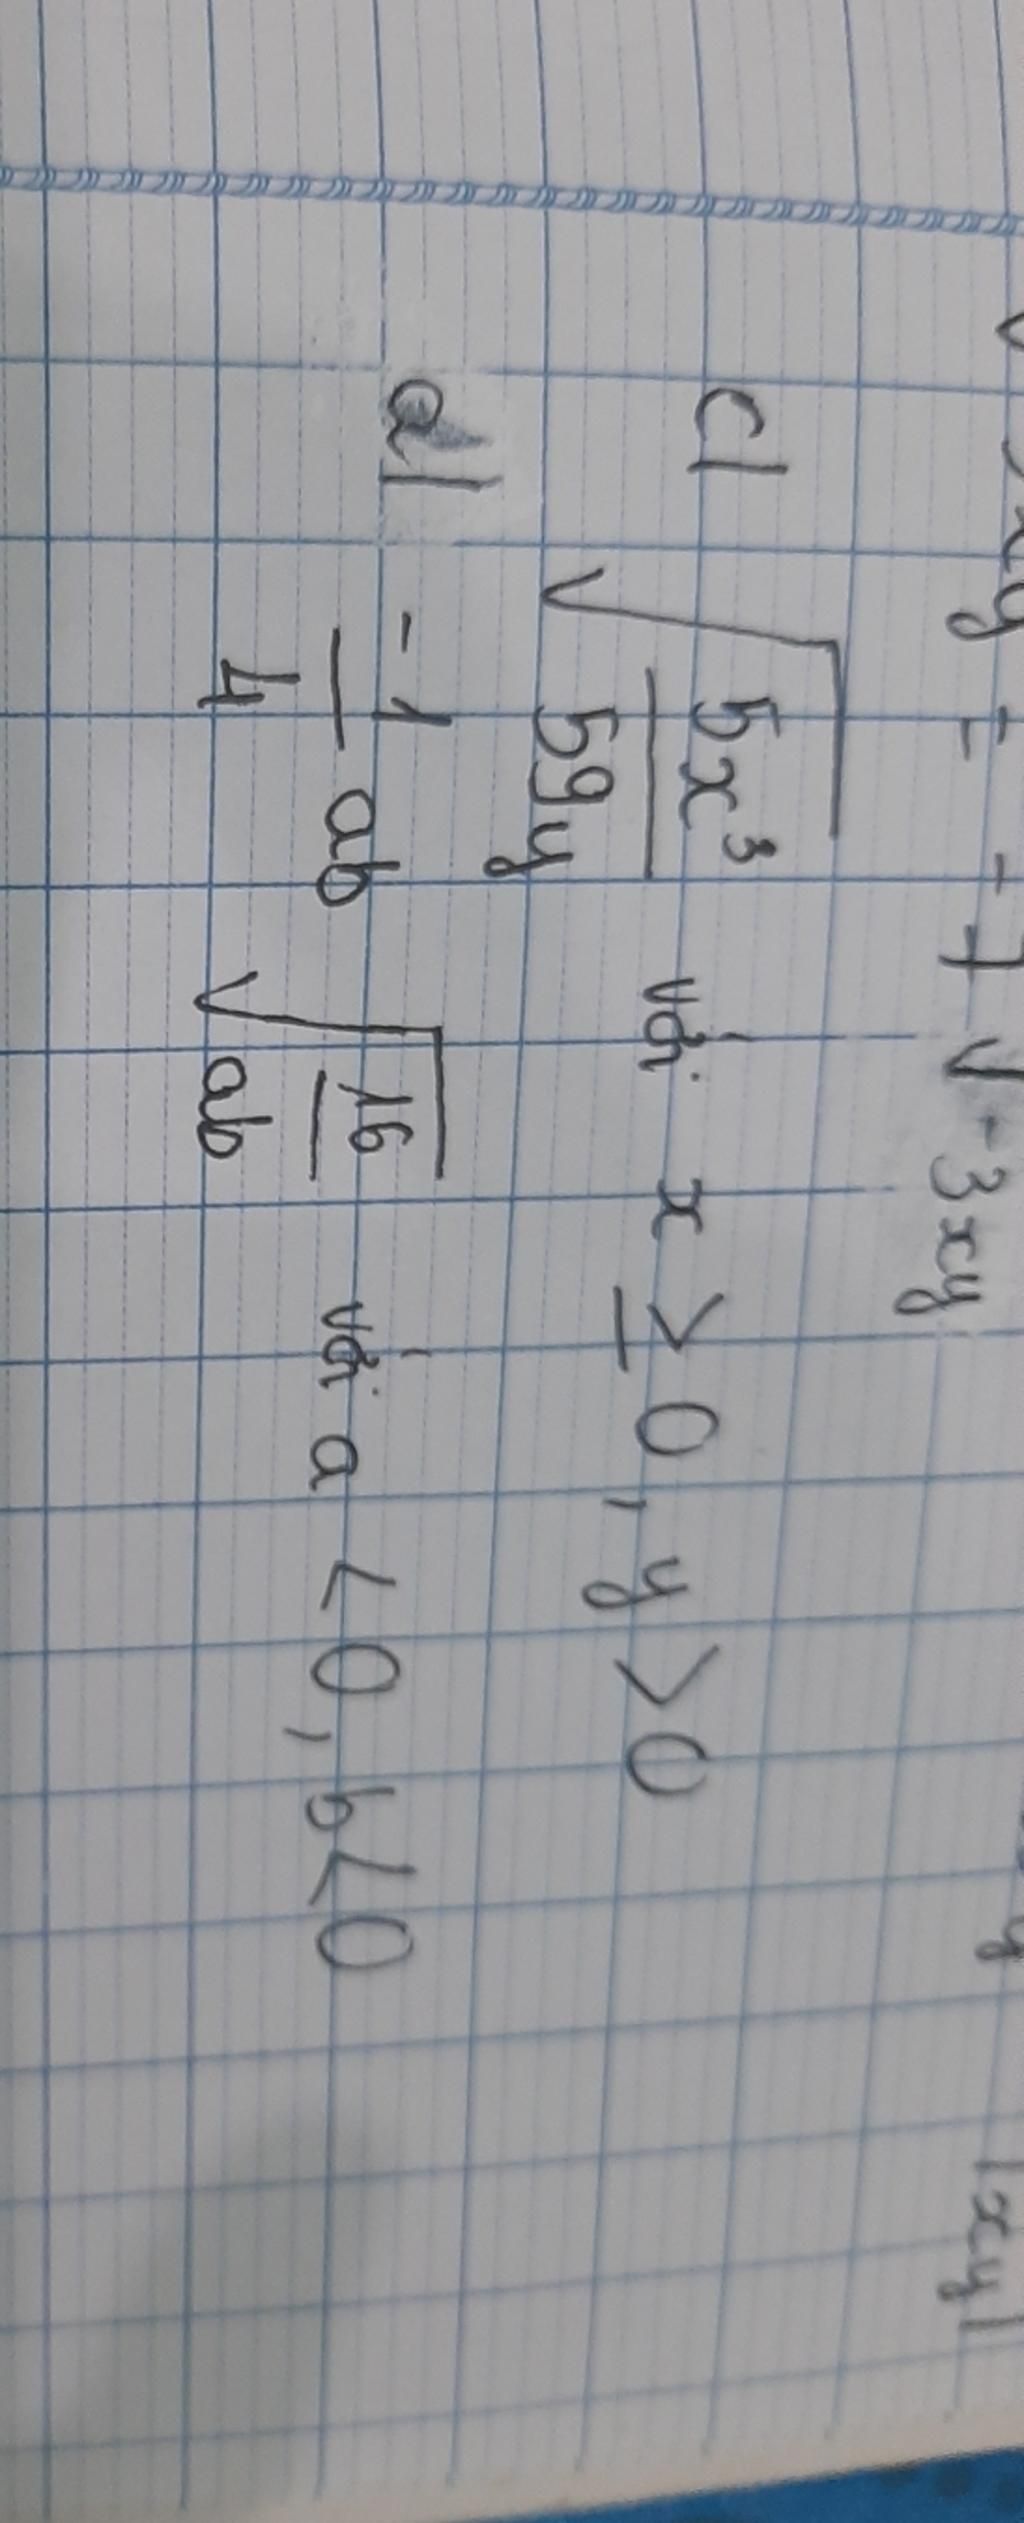 xy = - 7 √-3xy |xy|
c| √(5x³/59y) với x ≥ 0, y > 0
d| -1/4 ab √(16/ab) với a < 0, b < 0